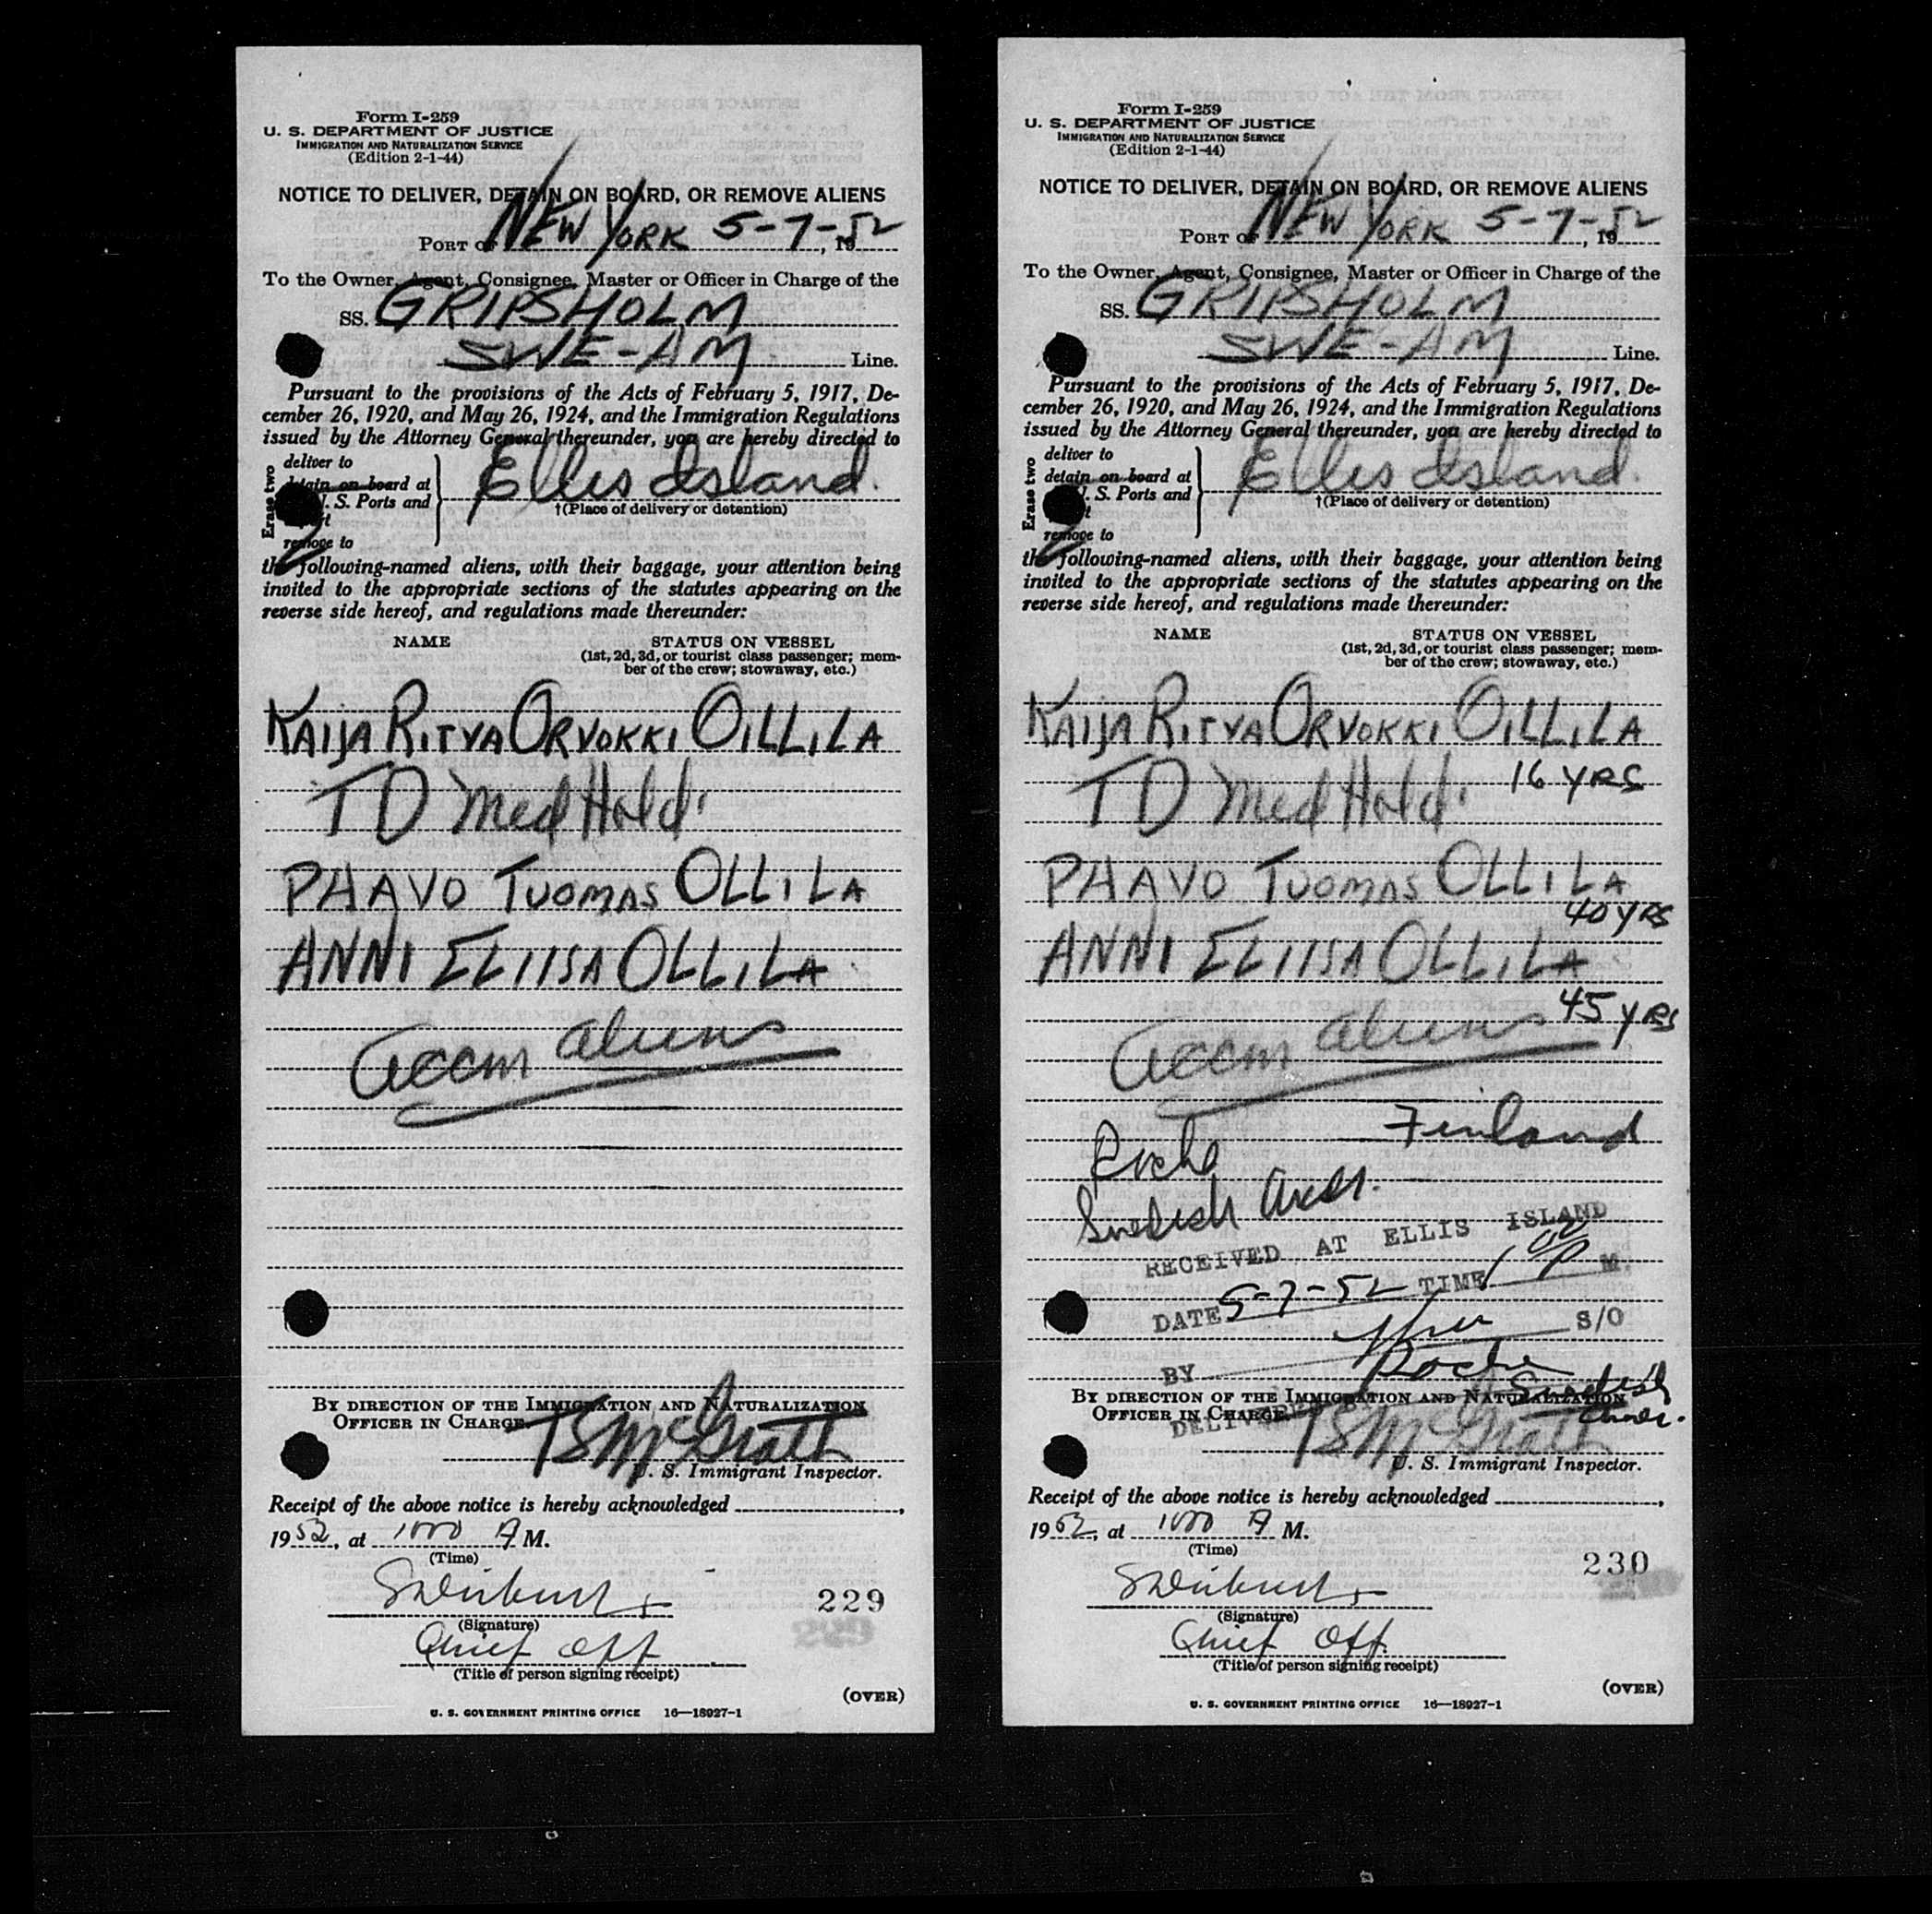 Form I-259
U. S. DEPARTMENT OF JUSTICE
IMMIGRATION AND NATURALIZATION SERVICE
(Edition 2-1-44)
NOTICE TO DELIVER, DETAIN ON BOARD, OR REMOVE ALIENS
PORT OF NEW YORK 5-7-, 1952
To the Owner, Agent, Consignee, Master or Officer in Charge of the
SS. GRIPSHOLM
SWE-AM Line.
Pursuant to the provisions of the Acts of February 5, 1917, De-
cember 26, 1920, and May 26, 1924, and the Immigration Regulations
issued by the Attorney General thereunder, you are hereby directed to
Erase two
deliver to
detain on board at
U. S. Ports and
remove to
Ellis Island.
†(Place of delivery or detention)
the following-named aliens, with their baggage, your attention being
invited to the appropriate sections of the statutes appearing on the
reverse side hereof, and regulations made thereunder:
NAME STATUS ON VESSEL
(1st, 2d, 3d, or tourist class passenger; mem-
ber of the crew; stowaway, etc.)
KAIJA RITVA ORVOKKI OILLILA
TD Med Hold.
PHAVO TUOMAS OLLILA
ANNI ELIISA OLLILA
accm aliens
BY DIRECTION OF THE IMMIGRATION AND NATURALIZATION
OFFICER IN CHARGE
TSMcGrath
U. S. Immigrant Inspector.
Receipt of the above notice is hereby acknowledged
1952, at 1000 A M.
(Time)
229
(Signature)
Chief Off
(Title of person signing receipt)
(OVER)
U. S. GOVERNMENT PRINTING OFFICE 16—18927-1
Form I-259
U. S. DEPARTMENT OF JUSTICE
IMMIGRATION AND NATURALIZATION SERVICE
(Edition 2-1-44)
NOTICE TO DELIVER, DETAIN ON BOARD, OR REMOVE ALIENS
PORT OF NEW YORK 5-7-, 1952
To the Owner, Agent, Consignee, Master or Officer in Charge of the
SS. GRIPSHOLM
SWE-AM Line.
Pursuant to the provisions of the Acts of February 5, 1917, De-
cember 26, 1920, and May 26, 1924, and the Immigration Regulations
issued by the Attorney General thereunder, you are hereby directed to
Erase two
deliver to
detain on board at
U. S. Ports and
remove to
Ellis Island.
†(Place of delivery or detention)
the following-named aliens, with their baggage, your attention being
invited to the appropriate sections of the statutes appearing on the
reverse side hereof, and regulations made thereunder:
NAME STATUS ON VESSEL
(1st, 2d, 3d, or tourist class passenger; mem-
ber of the crew; stowaway, etc.)
KAIJA RITVA ORVOKKI OILLILA
16 YRS
TD Med Hold.
PHAVO TUOMAS OLLILA
40 YRS
ANNI ELIISA OLLILA
45 YRS
accm aliens
Finland
Roche
Swedish Amer.
RECEIVED AT ELLIS ISLAND
DATE 5-7-52 TIME 1 00 P M.
BY S/O
Roche Swedish
Amer.
BY DIRECTION OF THE IMMIGRATION AND NATURALIZATION
OFFICER IN CHARGE
TSMcGrath
U. S. Immigrant Inspector.
Receipt of the above notice is hereby acknowledged
1952, at 1000 A M.
(Time)
230
(Signature)
Chief Off.
(Title of person signing receipt)
(OVER)
U. S. GOVERNMENT PRINTING OFFICE 16—18927-1